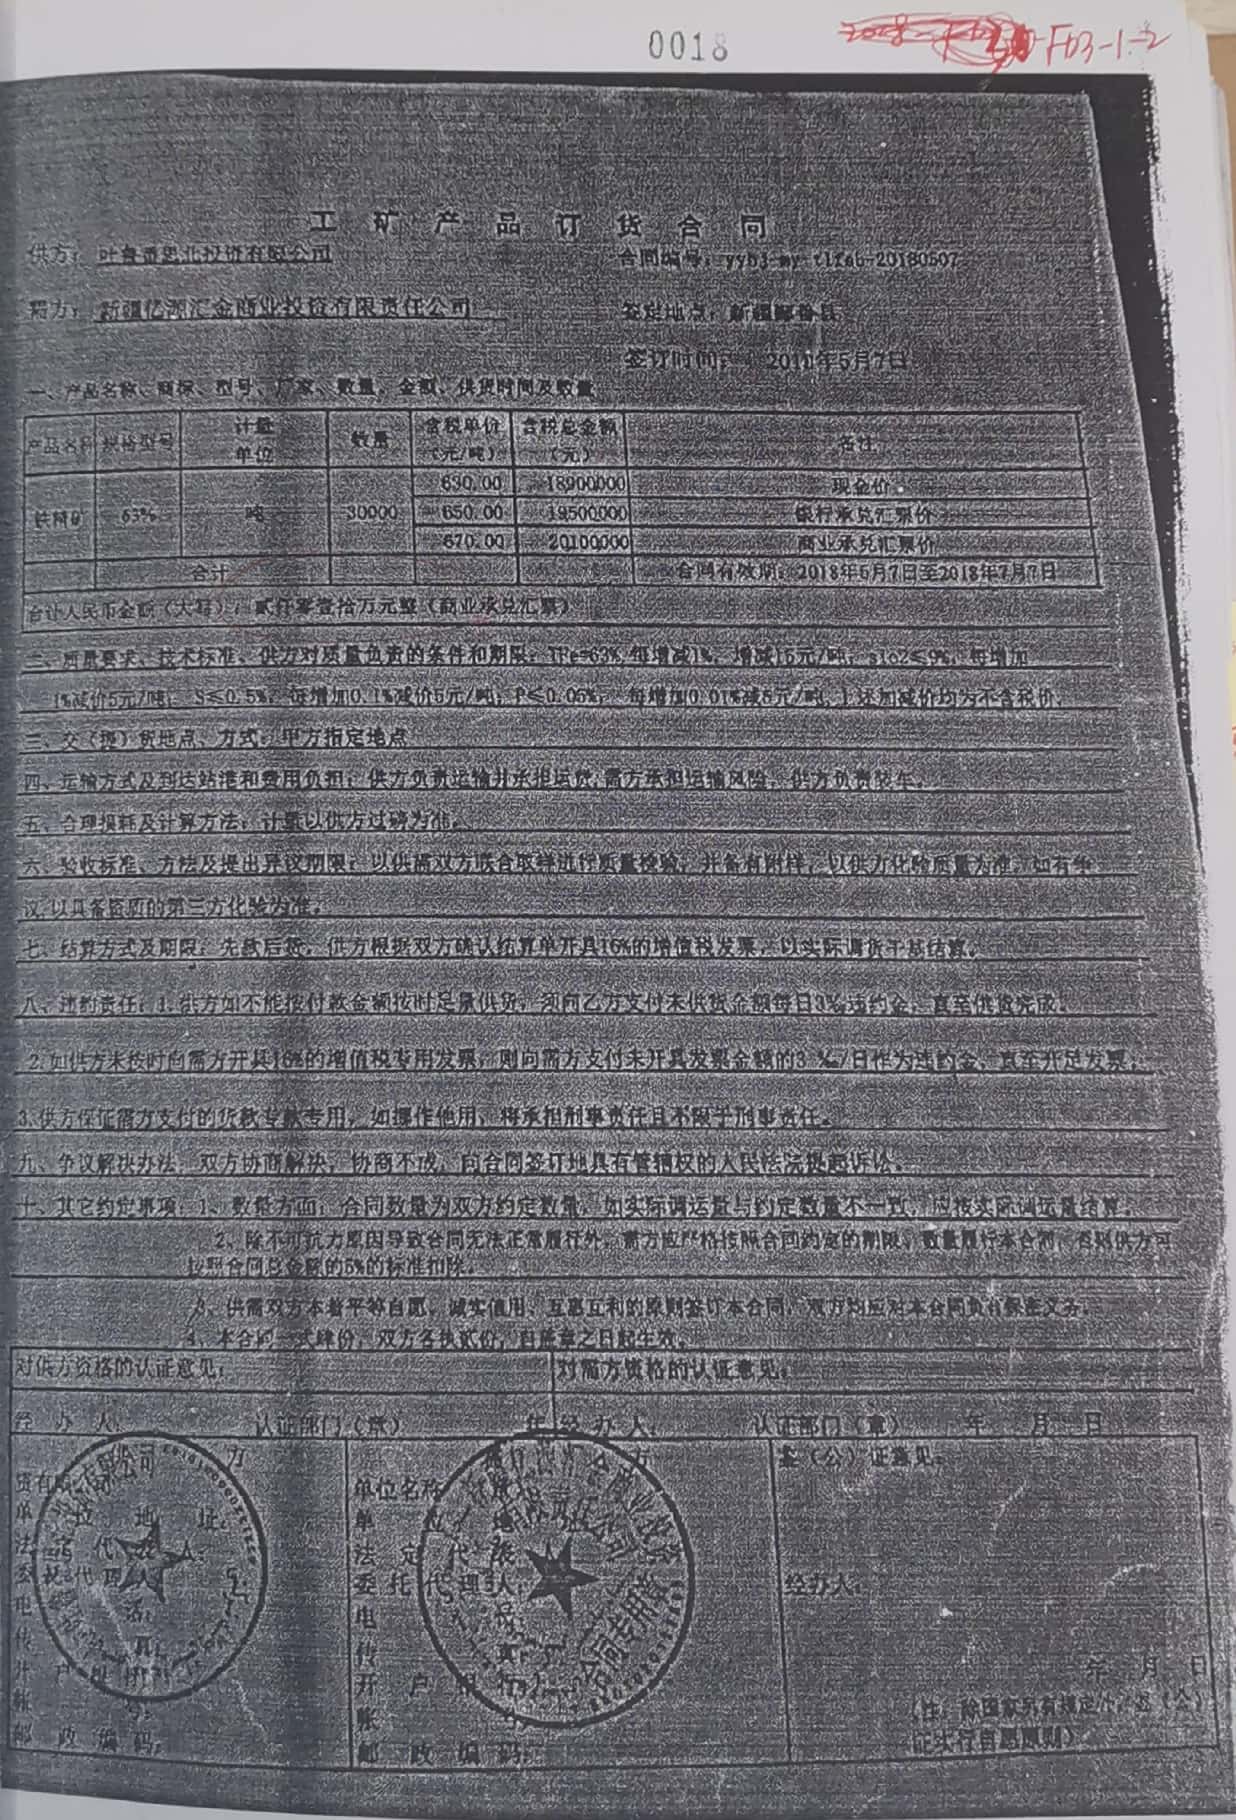 0018
F03-1-2
工矿产品订货合同
供方：吐鲁番思北投资有限公司
合同编号：yyhj-my-tlfsb-20180507
需方：新疆亿源汇金商业投资有限责任公司
签定地点：新疆鄯善县
签订时间：2018年5月7日
一、产品名称、商标、型号、厂家、数量、金额、供货时间及数量
产品名称 规格型号 计量单位 数量 含税单价（元/吨） 含税总金额（元） 备注
铁精矿 63% 吨 30000 630.00 18900000 现金价
650.00 19500000 银行承兑汇票价
670.00 20100000 商业承兑汇票价
合计 合同有效期：2018年5月7日至2018年7月7日
合计人民币金额（大写）：贰仟零壹拾万元整（商业承兑汇票）
二、质量要求、技术标准、供方对质量负责的条件和期限：TFe=63%，每增减1%，增减15元/吨；sio2≤9%，每增加
1%减价5元/吨；S≤0.5%，每增加0.1%减价5元/吨；P≤0.05%，每增加0.01%减5元/吨，上述加减价均为不含税价。
三、交（提）货地点、方式：甲方指定地点
四、运输方式及到达站港和费用负担：供方负责运输并承担运费，需方承担运输风险，供方负责装车。
五、合理损耗及计算方法：计量以供方过磅为准。
六、验收标准、方法及提出异议期限：以供需双方联合取样进行质量检验，并备有附样，以供方化验质量为准，如有争
议，以具备资质的第三方化验为准。
七、结算方式及期限：先款后货，供方根据双方确认结算单开具16%的增值税发票，以实际调货干基结算。
八、违约责任：1.供方如不能按付款金额按时足量供货，须向乙方支付未供货金额每日3%违约金，直至供货完成。
2.如供方未按时向需方开具16%的增值税专用发票，则向需方支付未开具发票金额的3‰/日作为违约金，直至开足发票；
3.供方保证需方支付的货款专款专用，如挪作他用，将承担刑事责任且不限于刑事责任。
九、争议解决办法：双方协商解决，协商不成，向合同签订地具有管辖权的人民法院提起诉讼。
十、其它约定事项：1、数量方面：合同数量为双方约定数量，如实际调运量与约定数量不一致，应按实际调运量结算。
2、除不可抗力原因导致合同无法正常履行外，需方应严格按照合同约定的期限、数量履行本合同，否则供方可
按照合同总金额的5%的标准扣除。
3、供需双方本着平等自愿、诚实信用、互惠互利的原则签订本合同，双方均应对本合同负有保密义务。
4、本合同一式肆份，双方各执贰份，自盖章之日起生效。
对供方资格的认证意见： 对需方资格的认证意见：
经办人： 认证部门（章） 年 经办人： 认证部门（章） 年 月 日
方 方 鉴（公）证意见：
单位名称
单 位 地 址：
法定代表人： 法定代表人：
委托代理人： 委托代理人： 经办人：
电 话： 电
传 真： 传 真：
开户银行： 开户银行： 年 月 日
帐 号： 帐 （注：除国家另有规定外，鉴（公）
邮政编码： 邮政编码： 证实行自愿原则）
合同专用章